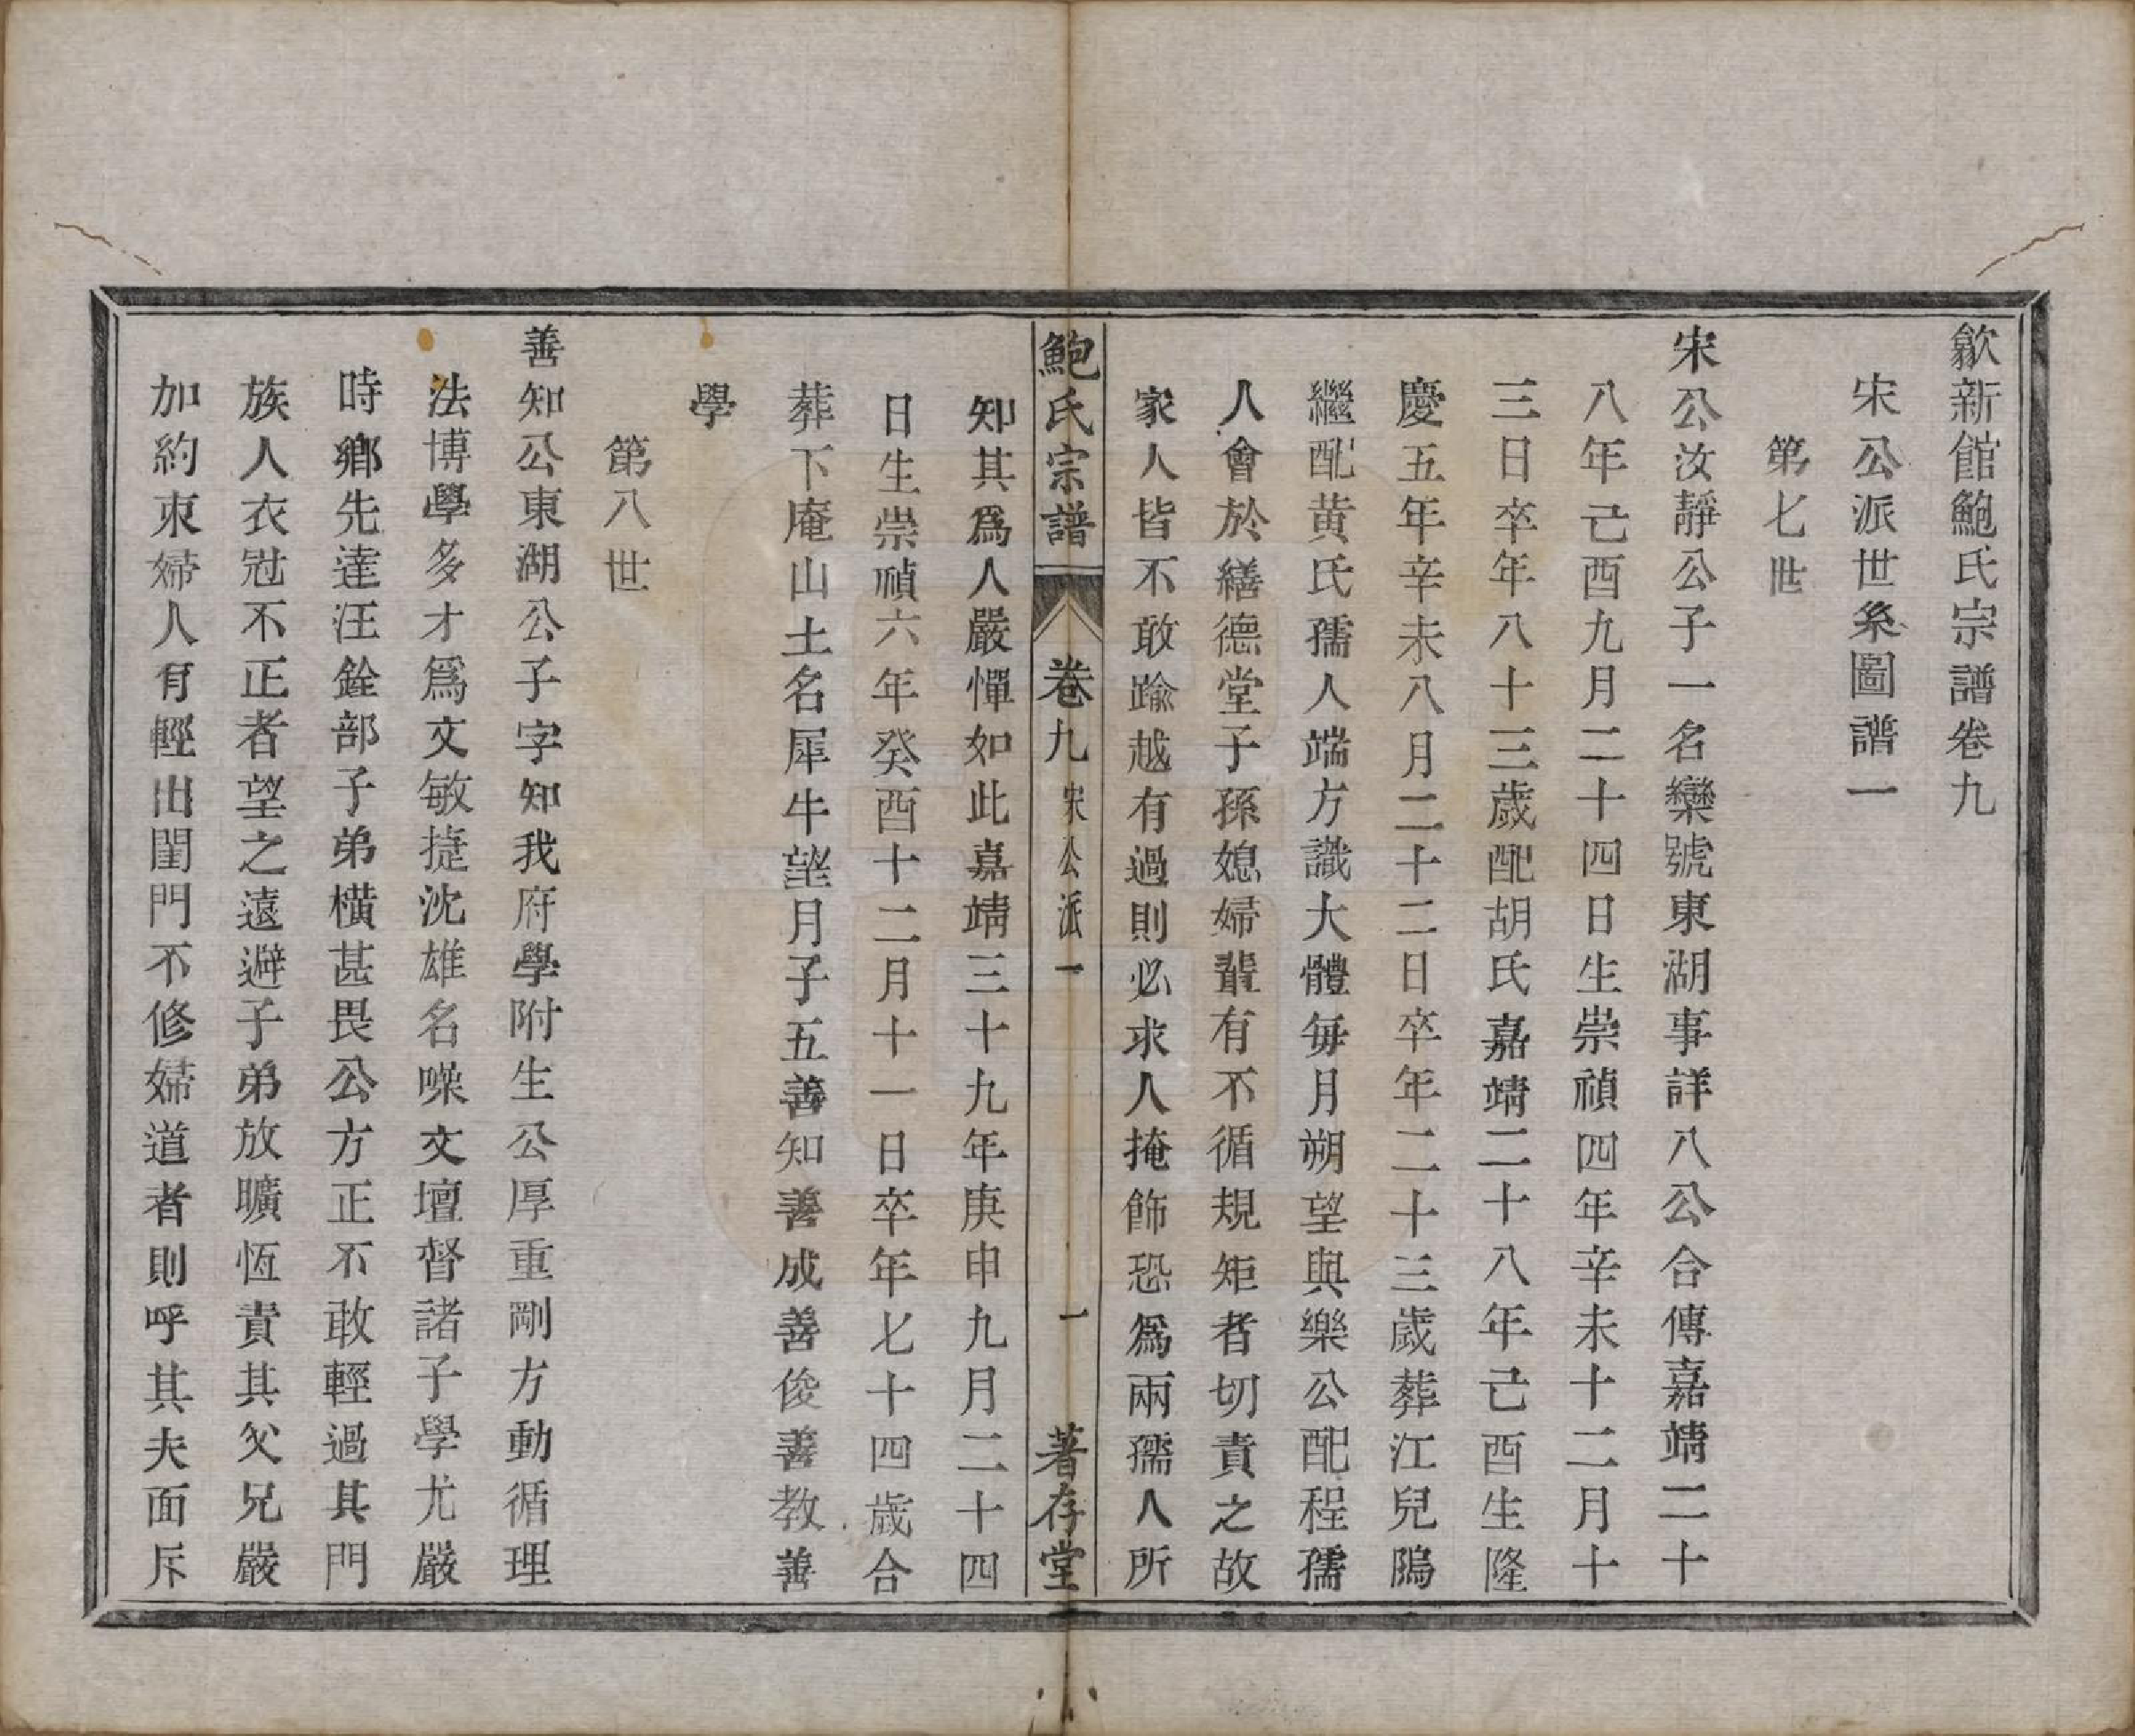 歙新館鮑氏宗譜卷九
宋公派世系圖譜一
第七世
宋公汝靜公子一名欒號東湖事詳八公合傳嘉靖二十
八年己酉九月二十四日生崇禎四年辛未十二月十
三日卒年八十三歲配胡氏嘉靖二十八年己酉生隆
慶五年辛未八月二十二日卒年二十三歲葬江兒隝
繼配黄氏孺人端方識大體每月朔望與樂公配程孺
人會於繕德堂子孫媳婦輩有不循規矩者切責之故
家人皆不敢踰越有過則必求人掩飾恐爲兩孺人所
鮑氏宗譜 卷九 宋公派一 一 著存堂
知其爲人嚴憚如此嘉靖三十九年庚申九月二十四
日生崇禎六年癸酉十二月十一日卒年七十四歲合
葬下庵山土名犀牛望月子五善知善成善俊善教善
學
第八世
善知公東湖公子字知我府學附生公厚重剛方動循理
法博學多才爲文敏捷沈雄名噪文壇督諸子學尤嚴
時鄉先達汪銓部子弟橫甚畏公方正不敢輕過其門
族人衣冠不正者望之遠避子弟放曠恆責其父兄嚴
加約束婦人有輕出閨門不修婦道者則呼其夫面斥